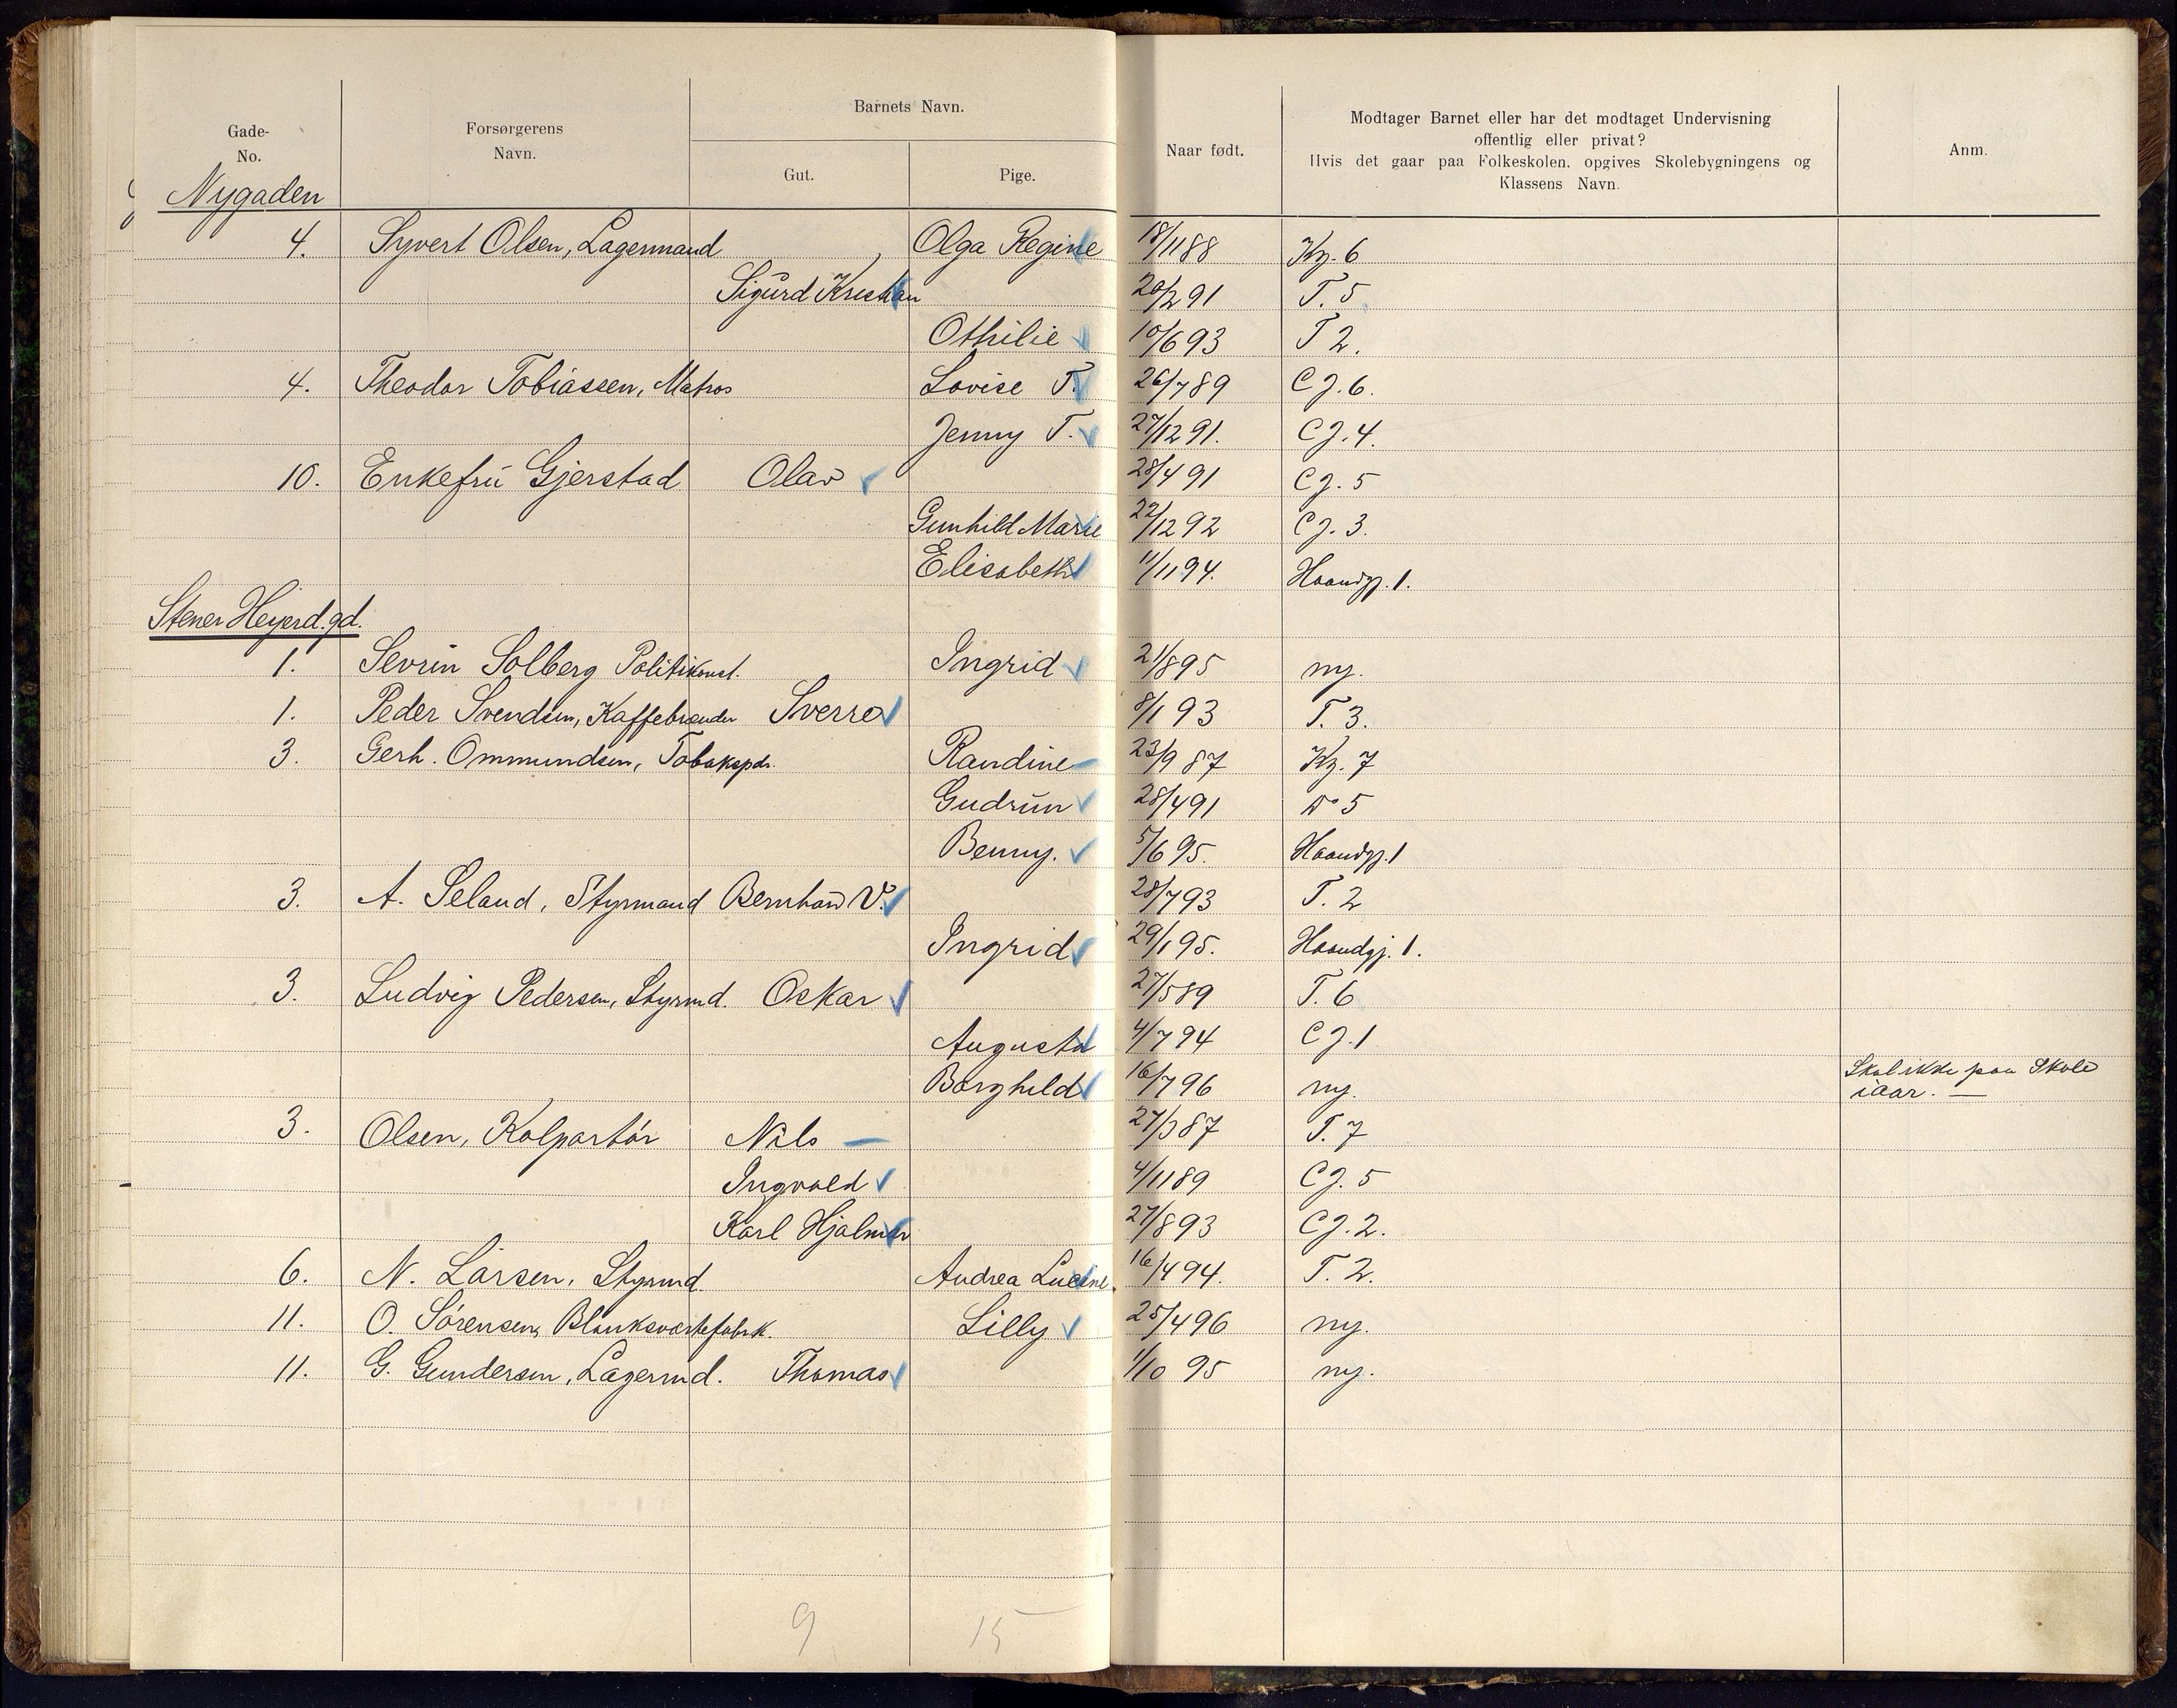 Gade-
No.
Forsørgerens
Navn.
Barnets Navn.
Gut.
Pige.
Naar født.
Modtager Barnet eller har det modtaget Undervisning
offentlig eller privat?
Hvis det gaar paa Folkeskolen, opgives Skolebygningens og
Klassens Navn.
Anm.
Nygaden
4. Syvert Olsen, Lagermand Olga Regine 18/11 88 Kg. 6
Sigurd Kristian 20/2 91 T. 5
Othilie 10/6 93 T 2.
4. Theodor Tobiassen, Matros Lovise T. 26/7 89 CJ. 6.
Jenny T. 27/12 91. CJ. 4.
10. Enkefru Gjerstad Olav 28/4 91 CJ. 5
Gunhild Marie 22/12 92 CJ. 3.
Elisabeth 11/11 94. Haandgj. 1.
Stener Heyerd. gd.
1. Sevrin Solberg Politikonst. Ingrid 21/8 95 ny.
1. Peder Svendsen, Kaffebrænder Sverre 8/1 93 T. 3.
3. Gerh. Ommundsen, Tobakspd. Randine 23/9 87 Kg. 7
Gudrun 28/4 91 Do 5
Benny. 5/6 95. Haandgj. 1
3. A. Seland, Styrmand Bernhard V. 28/7 93 T. 2
Ingrid 29/1 95. Haandgj. 1.
3. Ludvig Pedersen, Styrmd. Oskar 27/5 89 T. 6
Augusta 4/7 94 CJ. 1
Borghild 16/7 96 ny. Skal ikke paa Skole
iaar. —
3. Olsen, Kolportør Nils — 27/3 87 T. 7
Ingvald 4/11 89 CJ. 5
Karl Hjalmar 27/8 93 CJ. 2.
6. N. Larsen, Styrmd. Andrea Lucine. 16/4 94. T. 2.
11. O. Sørensen, Blanksværtefabrk. Lilly 25/4 96 ny.
11. G. Gundersen, Lagermd. Thomas 1/10 95 ny.
9 15